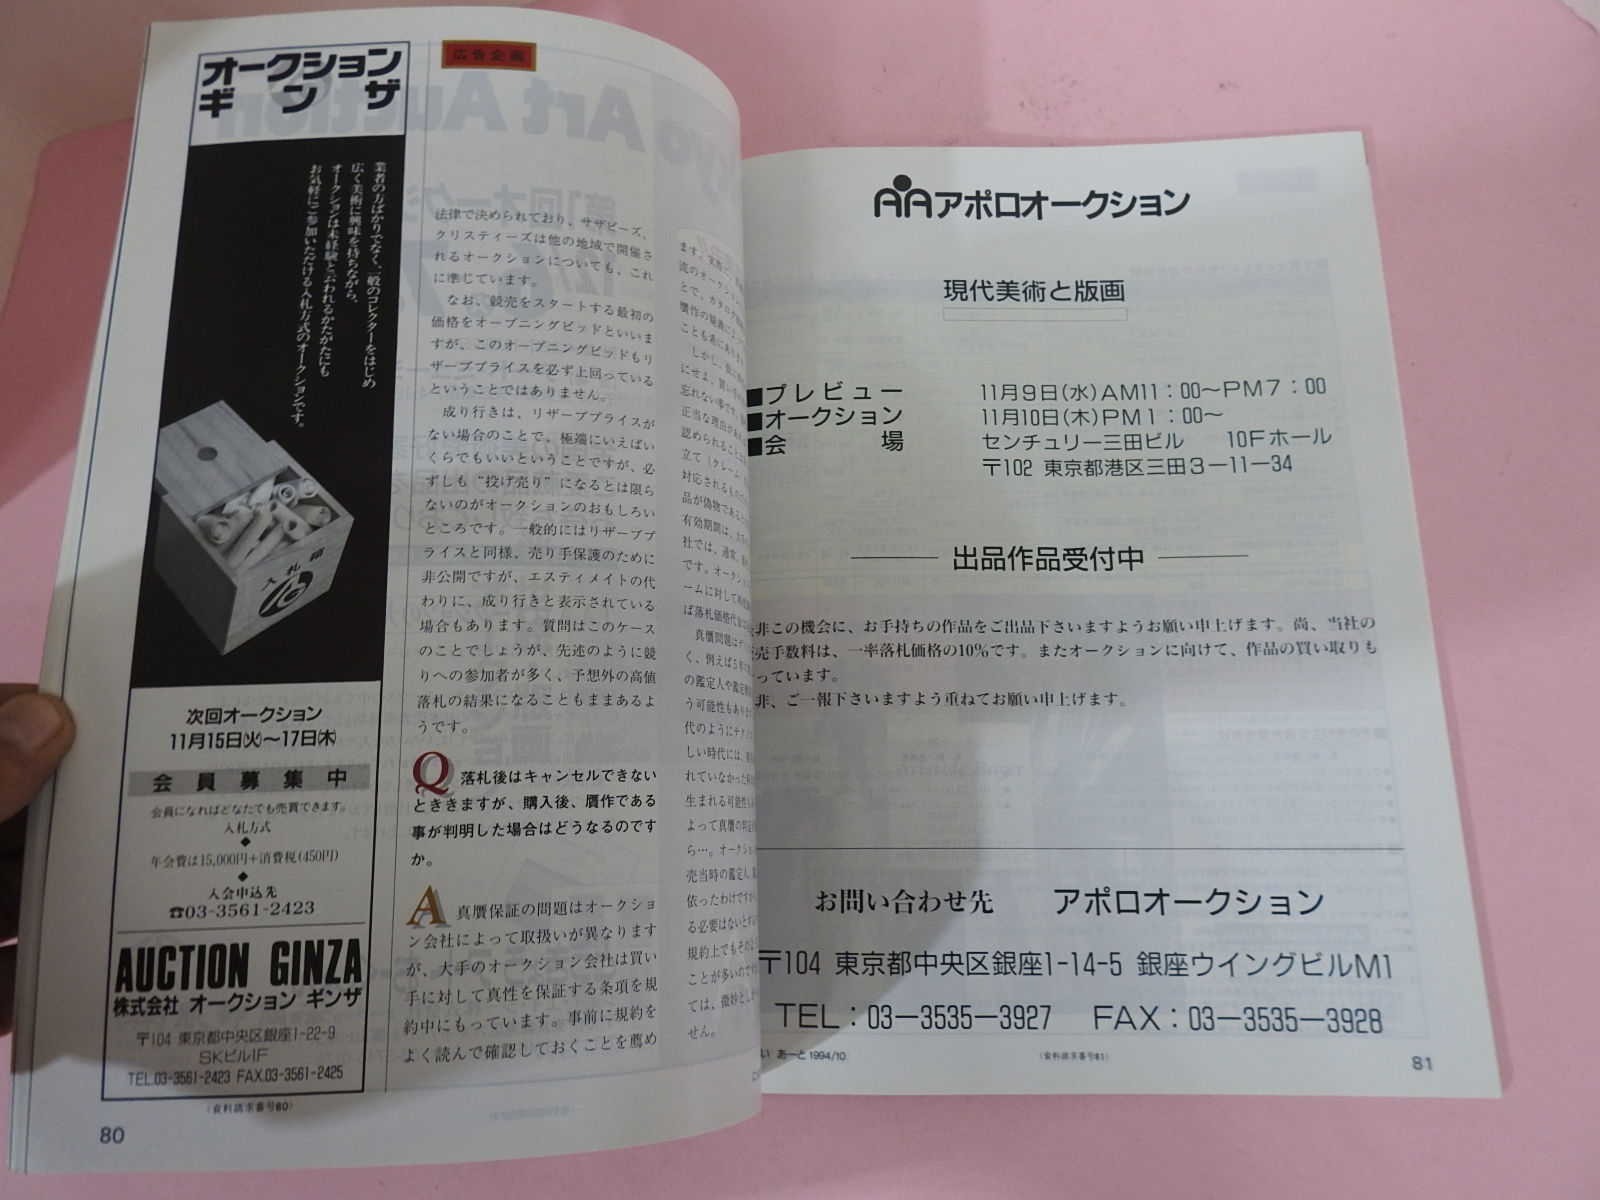 オークション
ギンザ
業者の方ばかりでなく、一般のコレクターをはじめ
広く美術に興味を持ちながら、
オークションは未経験といわれるかたがたにも
お気軽にご参加いただける入札方式のオークションです。
入札箱
次回オークション
11月15日㈫〜17日㈭
会員募集中
会員になればどなたでも売買できます。
入札方式
◆
年会費は15,000円+消費税(450円)
◆
入会申込先
☎03-3561-2423
AUCTION GINZA
株式会社 オークション ギンザ
〒104 東京都中央区銀座1-22-9
SKビル1F
TEL.03-3561-2423 FAX.03-3561-2425
〈資料請求番号80〉
80
広告企画
法律で決められており、サザビーズ、
クリスティーズは他の地域で開催さ
れるオークションについても、これ
に準じています。
なお、競売をスタートする最初の
価格をオープニングビッドといいま
すが、このオープニングビッドもリ
ザーブプライスを必ず上回っている
ということではありません。
成り行きは、リザーブプライスが
ない場合のことで、極端にいえばい
くらでもいいということですが、必
ずしも“投げ売り”になるとは限ら
ないのがオークションのおもしろい
ところです。一般的にはリザーブプ
ライスと同様、売り手保護のために
非公開ですが、エスティメイトの代
わりに、成り行きと表示されている
場合もあります。質問はこのケース
のことでしょうが、先述のように競
りへの参加者が多く、予想外の高値
落札の結果になることもままあるよ
うです。
Q 落札後はキャンセルできない
とききますが、購入後、贋作である
事が判明した場合はどうなるのです
か。
A 真贋保証の問題はオークショ
ン会社によって取扱いが異なります
が、大手のオークション会社は買い
手に対して真性を保証する条項を規
約中にもっています。事前に規約を
よく読んで確認しておくことを薦め
ます。実際に
流のオークション
とで、カタログ
贋作の疑義によ
ことも希にあり
しかし、仮に
にせよ、買い手
忘れない事です。
正当な理由が
認められることは
立て（クレーム
対応されるもので
品が偽物であると
有効期間は、大手
社では、通常、
です。オークション
ームに対して
ば落札価格代金
真贋問題はデリ
く、例えば5年
の鑑定人や鑑定機
う可能性もあり
代のようにテクノ
しい時代には、
れていなかった
生まれる可能性も
よって真贋の判定
ら…。オークション
売当時の鑑定人、
依ったわけですか
る必要はないとする
規約上でもその
ことが多いのです
ては、微妙とし
せん。
アポロオークション
現代美術と版画
■プレビュー 11月9日(水)AM11：00〜PM7：00
■オークション 11月10日(木)PM1：00〜
■会場 センチュリー三田ビル 10Fホール
〒102 東京都港区三田3−11−34
出品作品受付中
非この機会に、お手持ちの作品をご出品下さいますようお願い申上げます。尚、当社の
売手数料は、一率落札価格の10%です。またオークションに向けて、作品の買い取りも
っています。
非、ご一報下さいますよう重ねてお願い申上げます。
お問い合わせ先 アポロオークション
〒104 東京都中央区銀座1-14-5 銀座ウイングビルM1
TEL：03−3535−3927 FAX：03−3535−3928
い あーと 1994/10
〈資料請求番号81〉
81